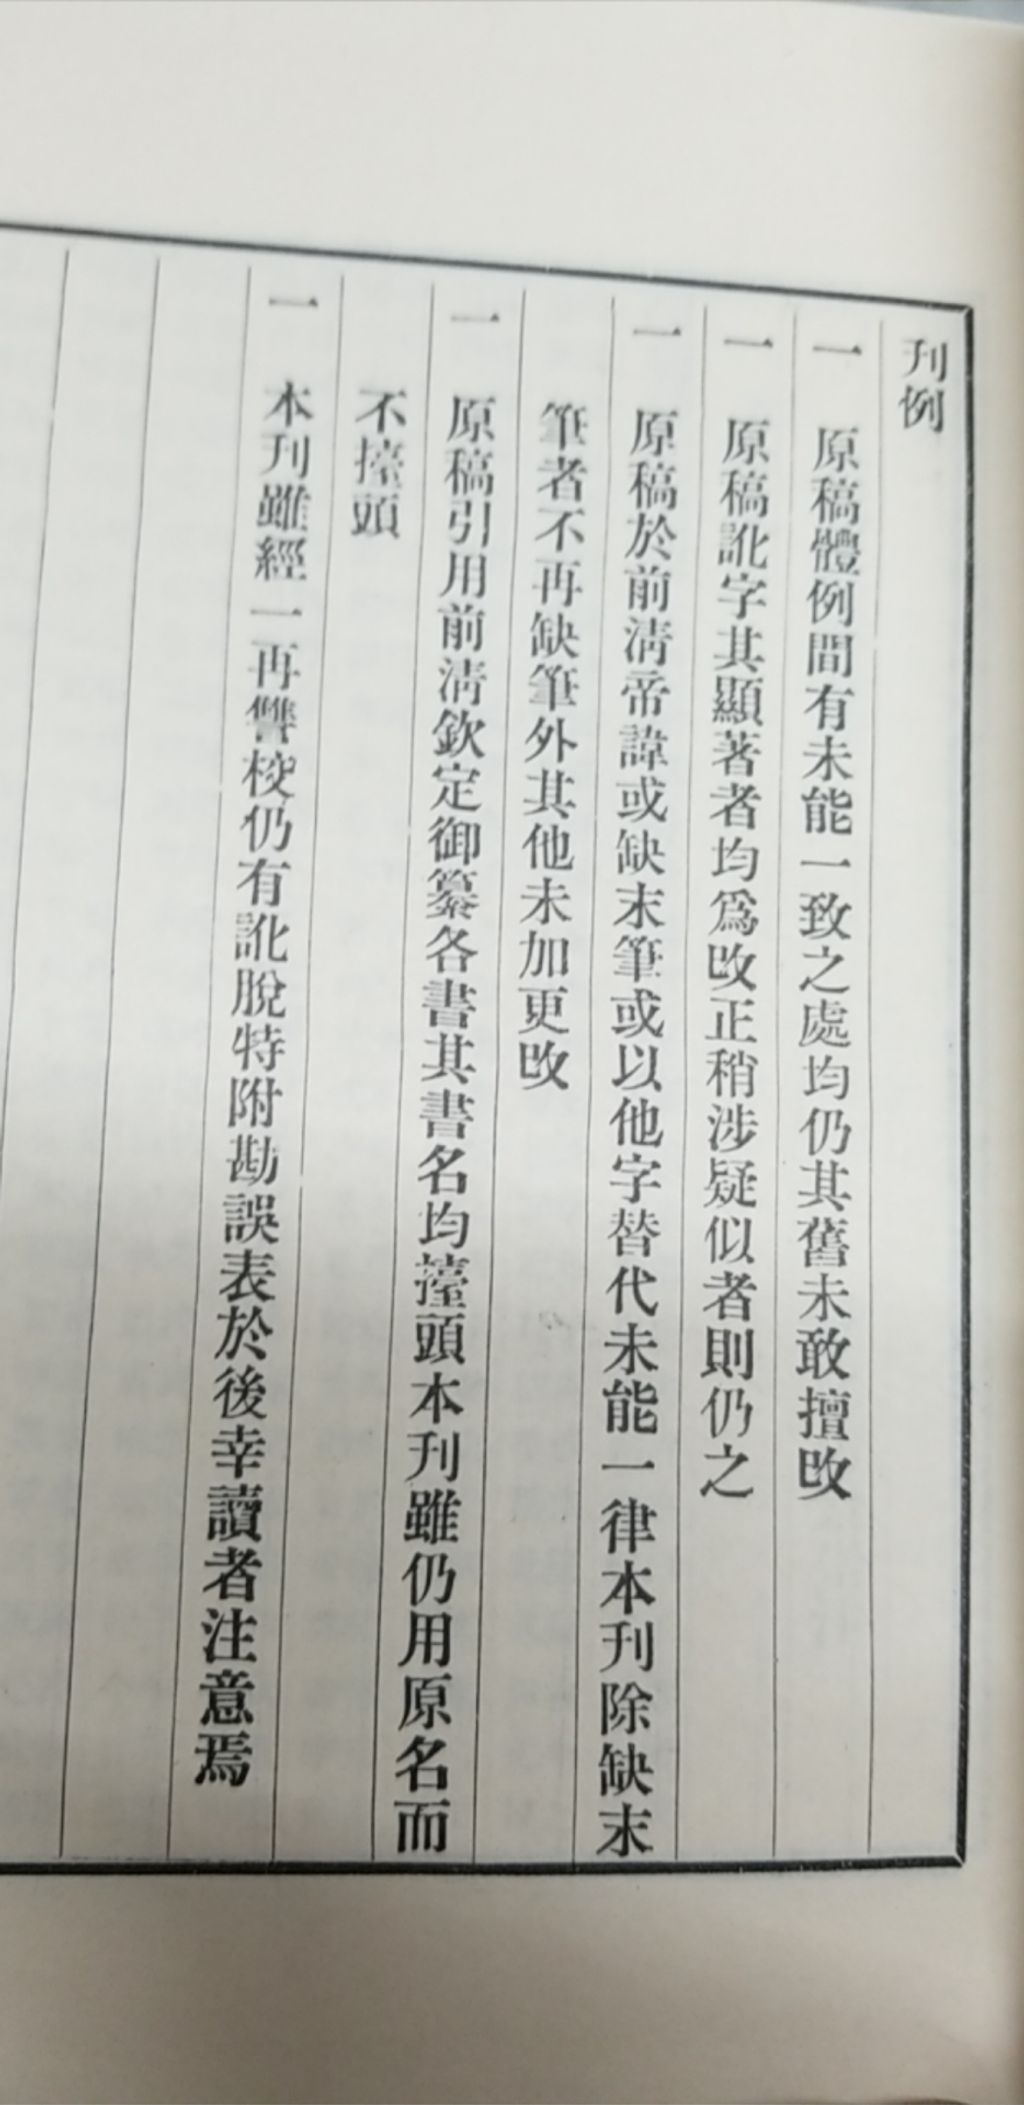 刊例
一　原稿體例間有未能一致之處均仍其舊未敢擅改
一　原稿訛字其顯著者均爲改正稍涉疑似者則仍之
一　原稿於前淸帝諱或缺末筆或以他字替代未能一律本刊除缺末
筆者不再缺筆外其他未加更改
一　原稿引用前淸欽定御纂各書其書名均擡頭本刊雖仍用原名而
不擡頭
一　本刊雖經一再讐校仍有訛脫特附勘誤表於後幸讀者注意焉